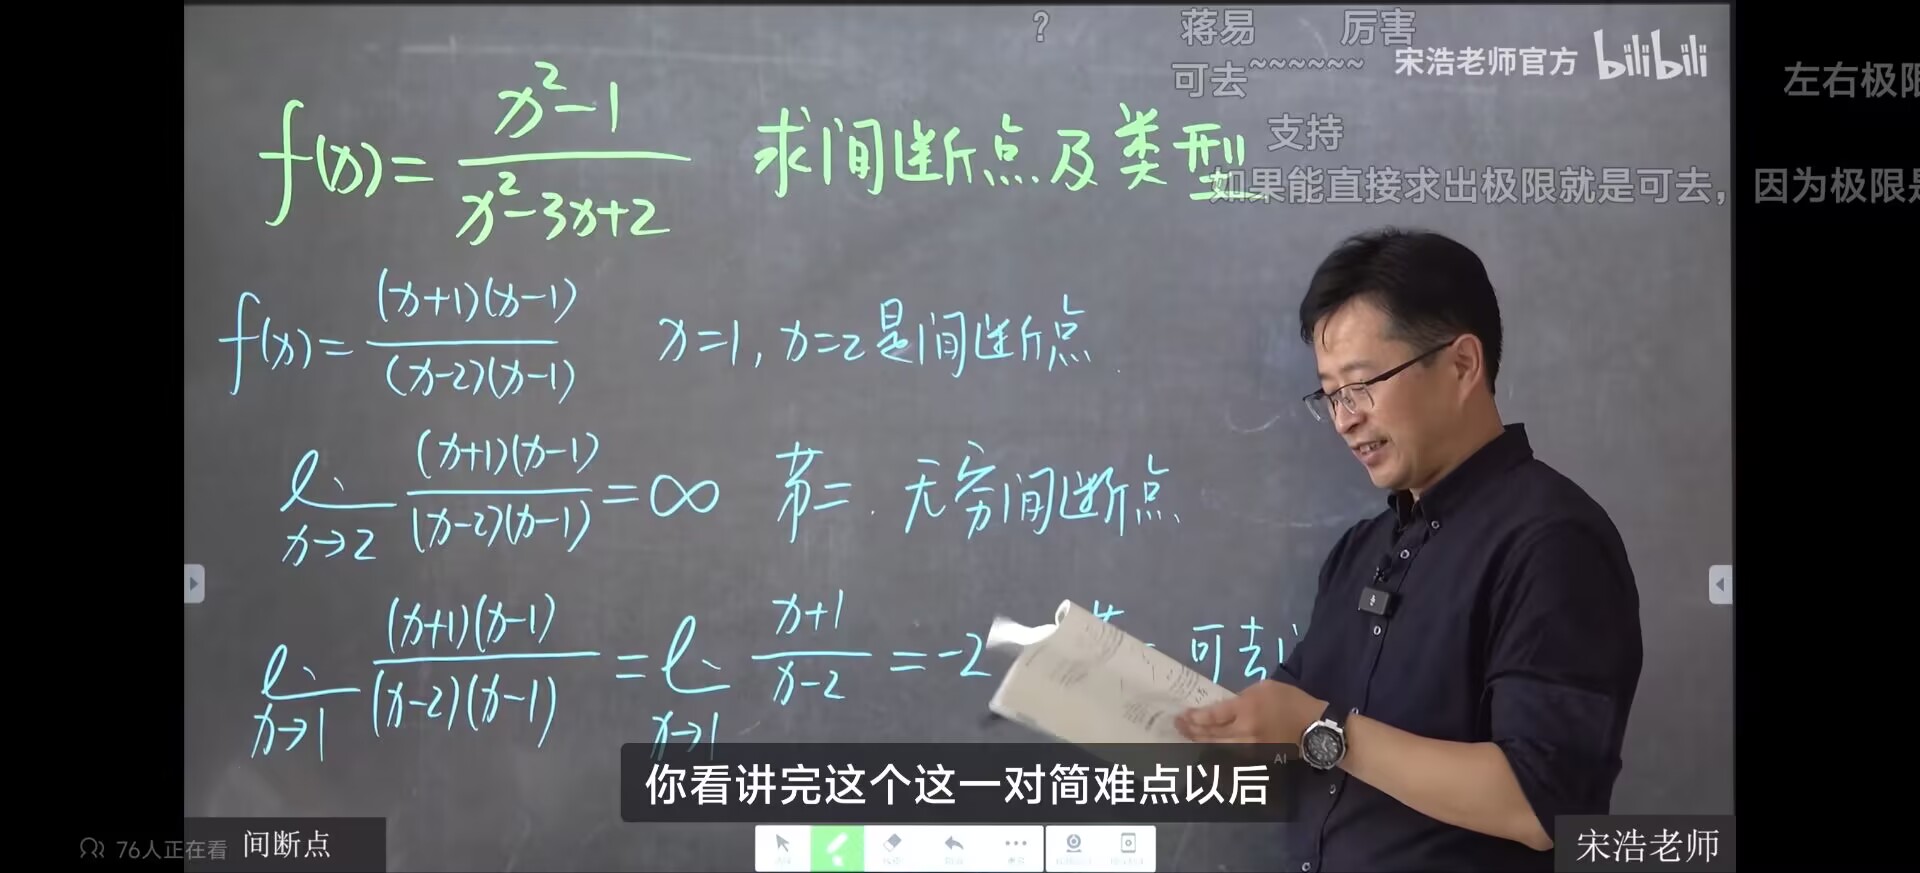 ? 蒋易 厉害
宋浩老师官方 bilibili
可去~~~~~~ 左右极限
支持
如果能直接求出极限就是可去，因为极限是
f(x)=\frac{x²-1}{x²-3x+2} 求间断点及类型
f(x)=\frac{(x+1)(x-1)}{(x-2)(x-1)} x=1, x=2是间断点.
\lim_{x→2}\frac{(x+1)(x-1)}{(x-2)(x-1)}=∞ 第二. 无穷间断点
\lim_{x→1}\frac{(x+1)(x-1)}{(x-2)(x-1)}=\lim_{x→1}\frac{x+1}{x-2}=-2 可去
你看讲完这个这一对简难点以后
AI
76人正在看
间断点
宋浩老师